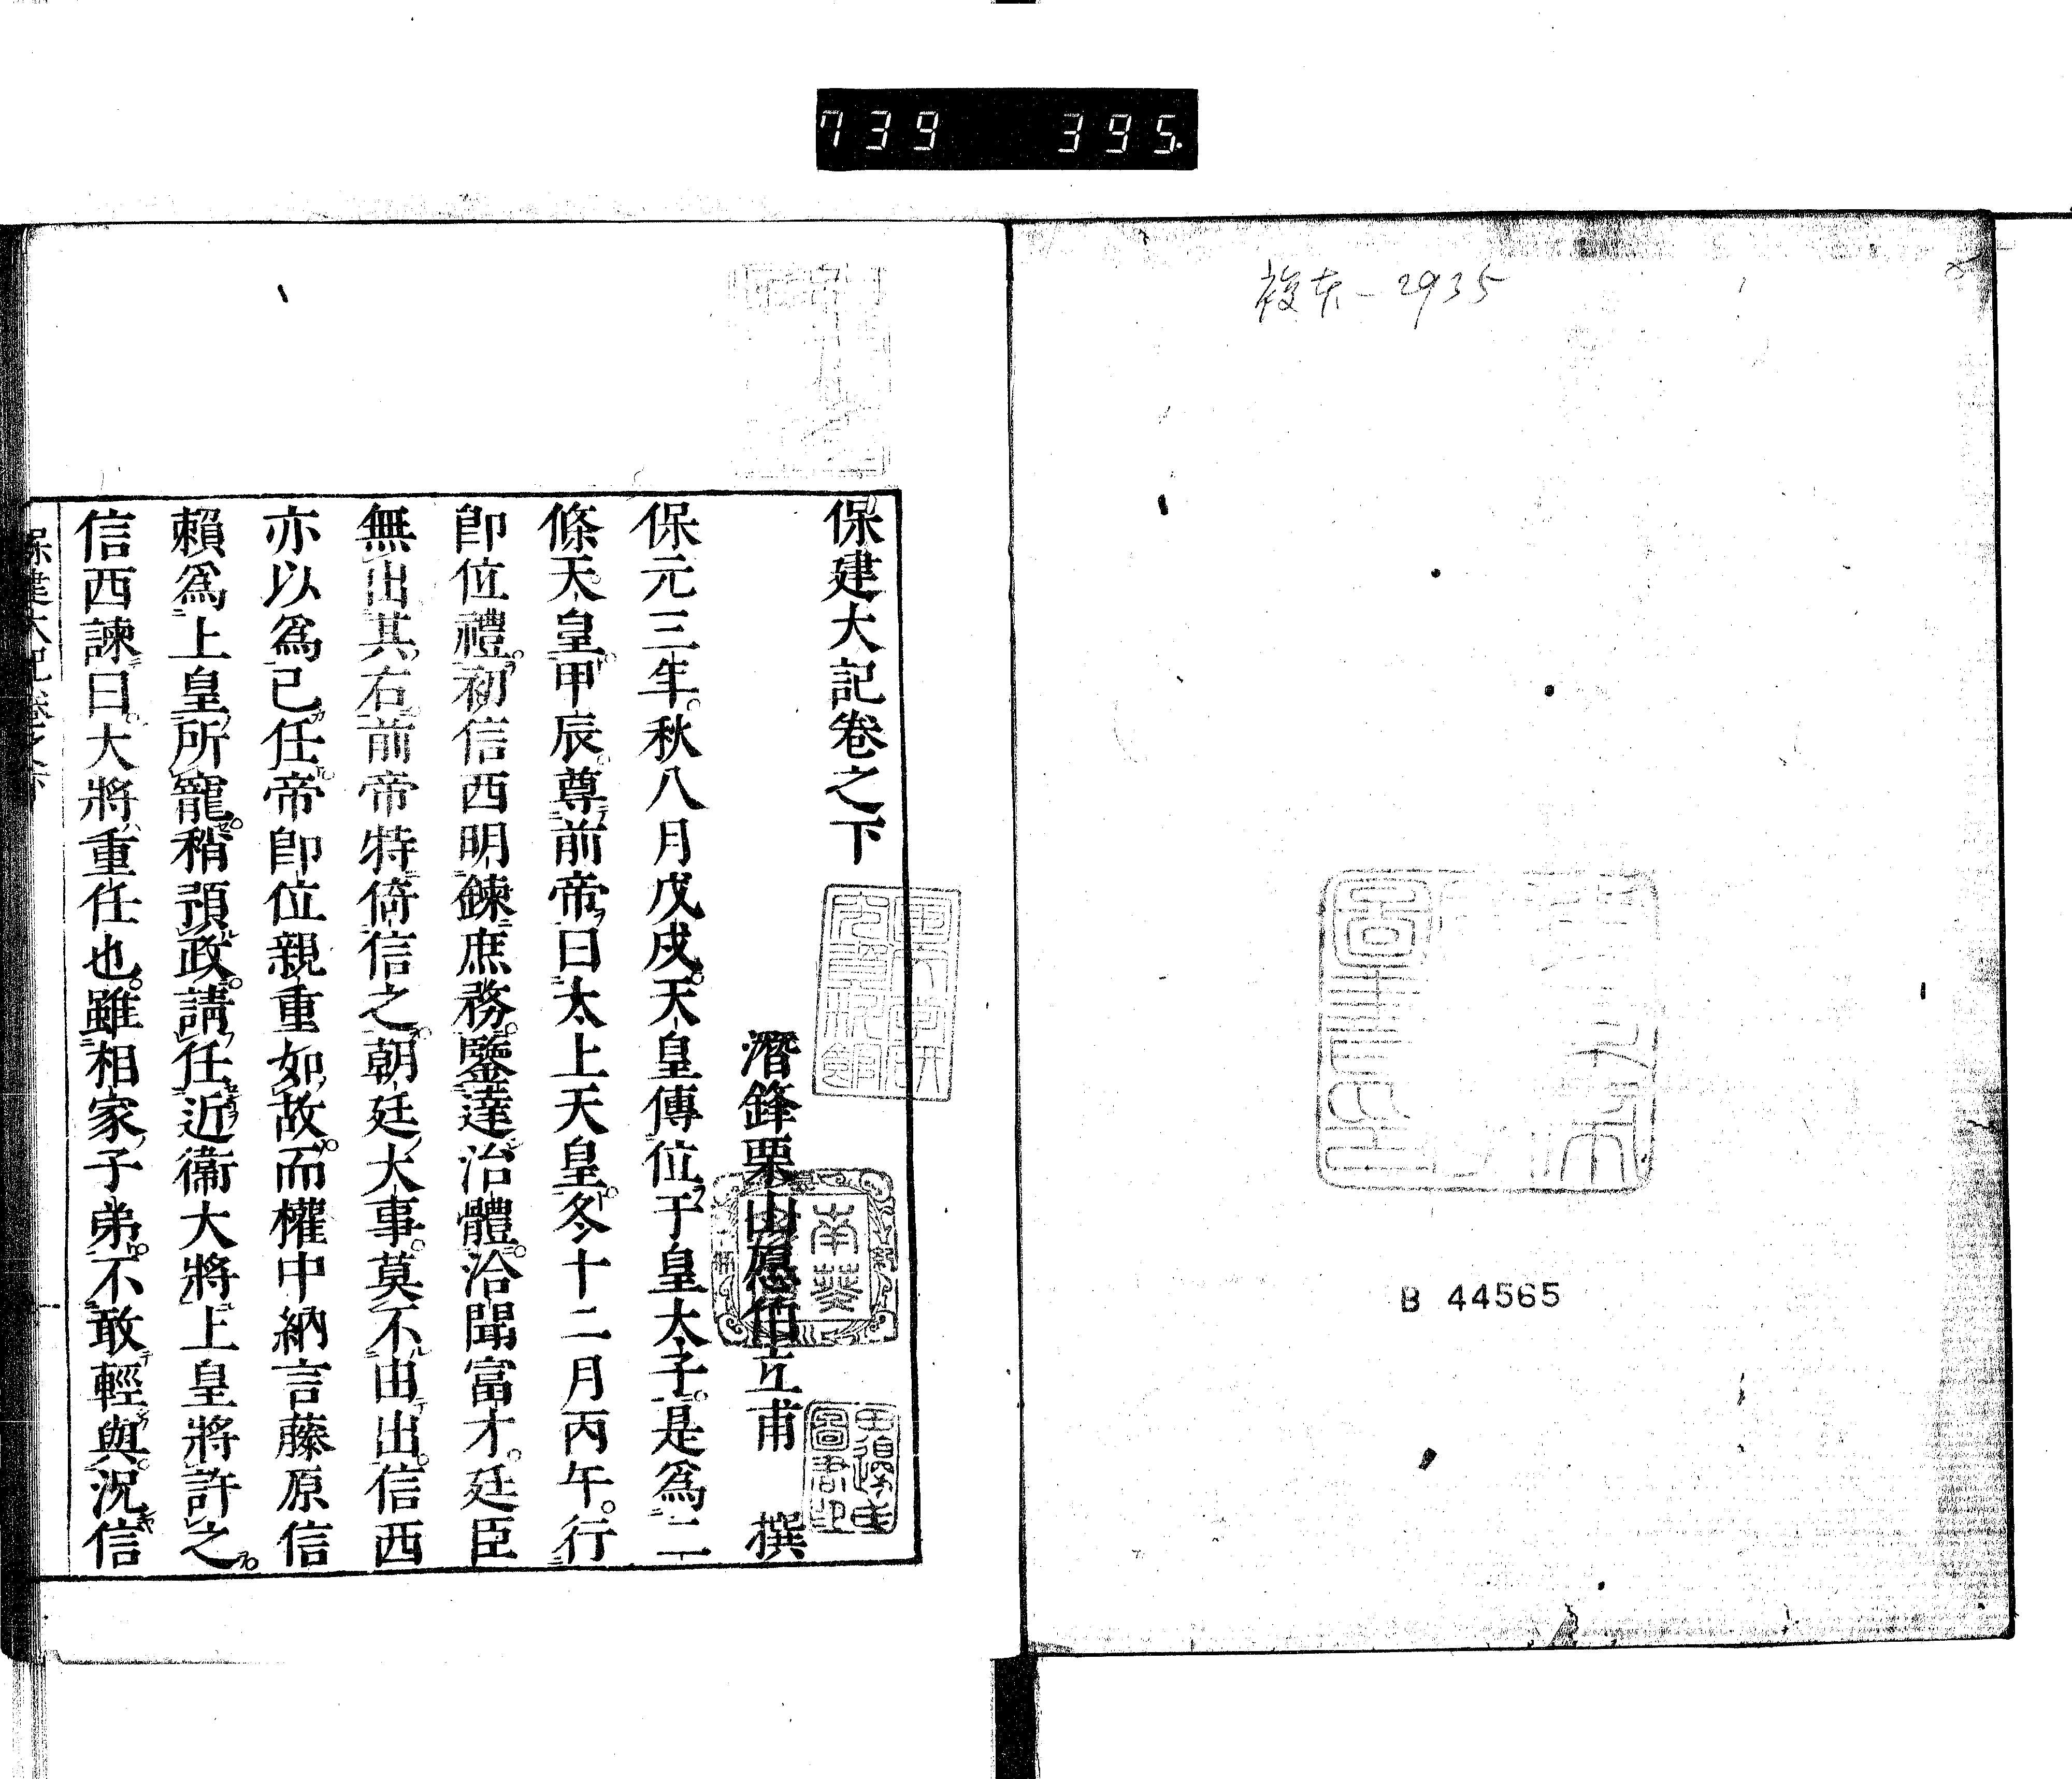 739 395.
複本-2935
B 44565
保建大記卷之下
潛鋒栗山愿伯立甫 撰
保元三年。秋八月戊戌。天皇傳位于皇太子。是爲二
條天皇。甲辰。尊前帝曰太上天皇。冬十二月丙午。行
卽位禮。初信西明鍊庶務。鑒達治體。洽聞富才。廷臣
無出其右。前帝特倚信之。朝廷大事。莫不由出。信西
亦以爲己任。帝卽位親重如故。而權中納言藤原信
賴爲上皇所寵。稍預政。請任近衞大將。上皇將許之。
信西諫曰。大將重任也。雖相家子弟。不敢輕與。況信
保建大記卷之下
南葵